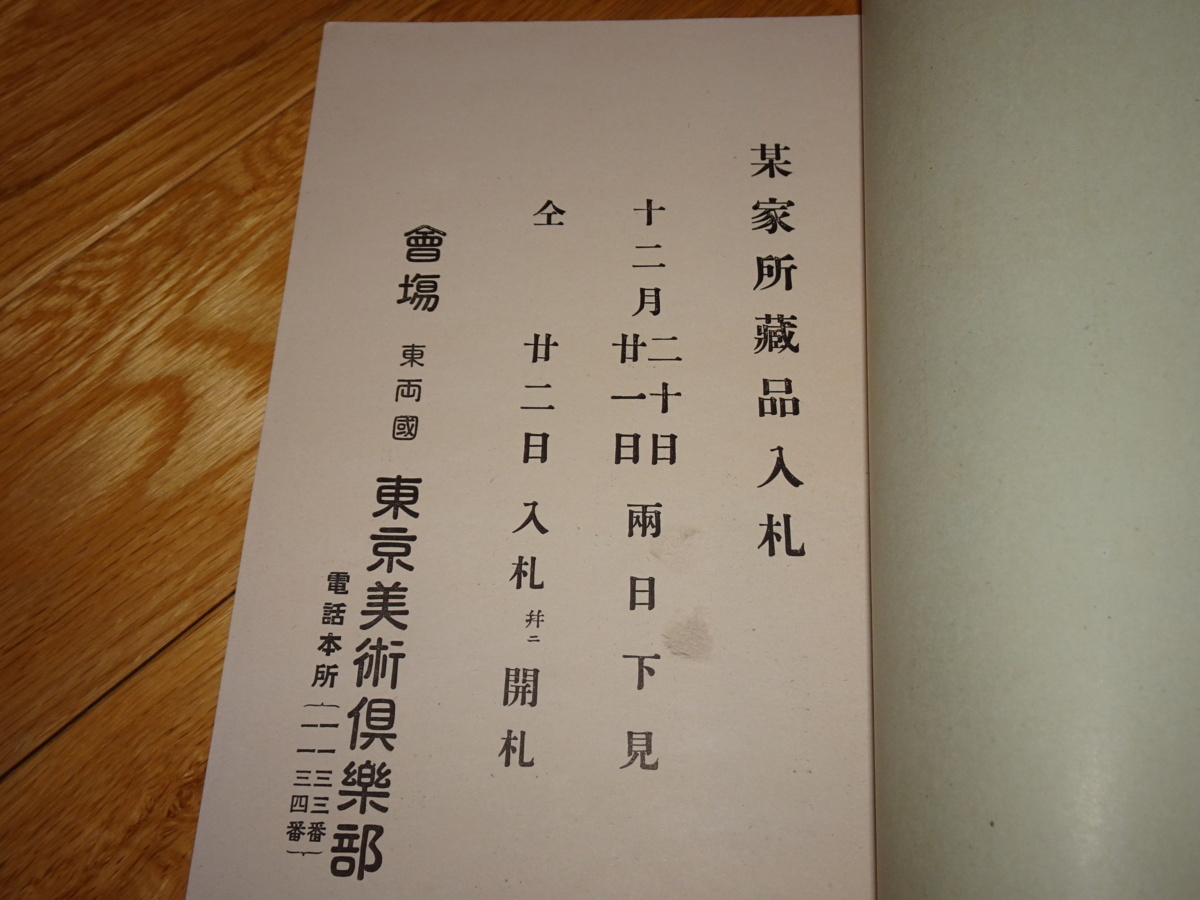 某家所藏品入札
十二月二十日廿一日兩日下見
仝 廿二日入札幷ニ開札
會場 東両國 東京美術倶樂部
電話本所 一一三三番
一一三四番